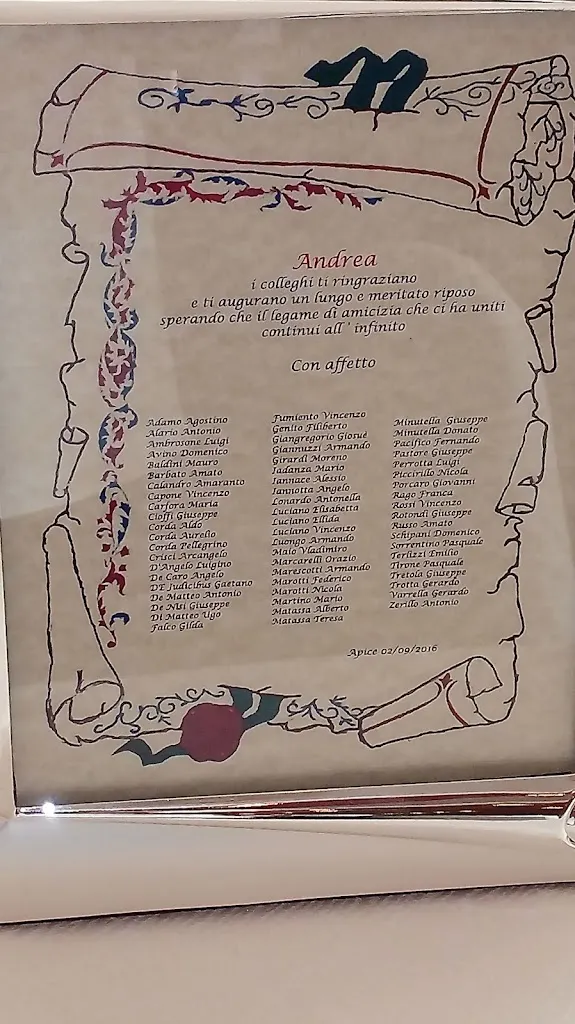 Andrea
i colleghi ti ringraziano
e ti augurano un lungo e meritato riposo
sperando che il legame di amicizia che ci ha uniti
continui all ' infinito
Con affetto
Adamo Agostino
Alario Antonio
Ambrosone Luigi
Avino Domenico
Baldini Mauro
Barbato Amato
Calandro Amaranto
Capone Vincenzo
Carfora Maria
Cioffi Giuseppe
Corda Aldo
Corda Aurelio
Corda Pellegrino
Crisci Arcangelo
D'Angelo Luigino
De Caro Angelo
DE Judicibus Gaetano
De Matteo Antonio
De Nisi Giuseppe
Di Matteo Ugo
Falco Gilda
Fumiento Vincenzo
Genito Filiberto
Giangregorio Giosuè
Giannuzzi Armando
Girardi Moreno
Iadanza Mario
Iannace Alessio
Iannotta Angelo
Lonardo Antonella
Luciano Elisabetta
Luciano Ellida
Luciano Vincenzo
Luongo Armando
Maio Vladimiro
Marcarelli Orazio
Marescotti Armando
Marotti Federico
Marotti Nicola
Martino Mario
Matassa Alberto
Matassa Teresa
Minutella Giuseppe
Minutella Donato
Pacifico Fernando
Pastore Giuseppe
Perrotta Luigi
Piccirillo Nicola
Porcaro Giovanni
Rago Franca
Rossi Vincenzo
Rotondi Giuseppe
Russo Amato
Schipani Domenico
Sorrentino Pasquale
Terlizzi Emilio
Tirone Pasquale
Tretola Giuseppe
Trotta Gerardo
Varrella Gerardo
Zerillo Antonio
Apice 02/09/2016